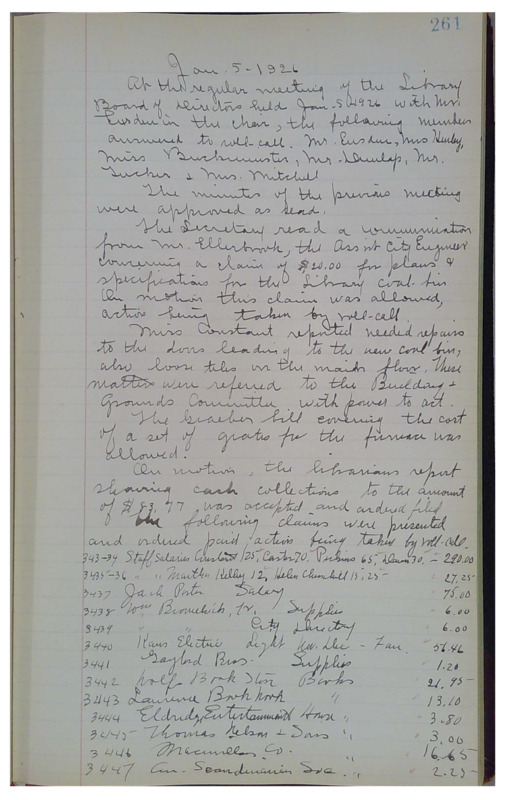 261
Jan. 5 - 1926
At the regular meeting of the Library
Board of Directors held Jan. 5, 1926 with Mr.
Eusden in the chair, the following members
answered to roll-call. Mr. Eusden, Miss
Miss Buckminster, Mr. Dunlap, Mr.
Tucker & Mrs. Mitchell
The minutes of the previous meeting
were approved as read.
The Secretary read a communication
from Mr. Ellerbrook, the Ass'nt City Engineer
concerning a claim of $20.00 for plans &
specifications for the Library coal bin
On motion this claim was allowed,
action being taken by roll-call.
Miss Constant reported needed repairs
to the doors leading to the new coal bin,
also loose tiles on the main floor. These
matters were referred to the Building &
Grounds Committee with power to act.
The Graeber bill covering the cost
of a set of grates for the furnace was
allowed.
On motion, the librarians report
showing cash collections to the amount
of $83.77 was accepted and ordered filed
The following claims were presented
and ordered paid, action being taken by roll-call.
Staff Salaries Constant 125, Carter 70, Perkins 65, 30, - 290.00
3435-36 " " Martha Kelley 12, Helen Churchill 15.25 - 27.25
3437 Jack Porter Salary 75.00
3438 Wm Bromelsick, Tr. Supplies " 6.00
3439 " City Directory " 6.00
3440 Kans Electric Light Nov. Dec - Jan. 56.46
3441 Gaylord Bros. Supplies " 1.20
3442 Wolf Book Store Books " 21.95
3443 Lawrence Book Nook " " 13.10
3444 Eldridge Entertainment House " " 3.80
3445 Thomas Nelson & Sons " " 3.00
3446 Macmillan Co. " 16.65
3447 Am. Scandinavian Soc. " " 2.25